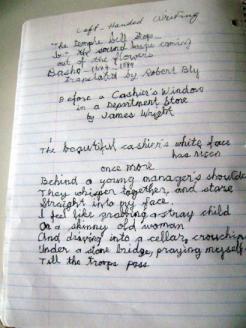 Left-Handed Writing
"The temple bell stops
but the sound keeps coming
out of the flowers
Basho 1644-1694
Translated by Robert Bly
Before a Cashier's Window
in a Department Store
by James Wright
1
The beautiful cashier's white face
has risen
once more
Behind a young manager's shoulder
They whisper together, and stare
Straight into my face.
I feel like grabbing a stray child
Or a skinny old woman
And diving into a cellar, crouching
Under a stone bridge, praying myself
Till the troops pass.